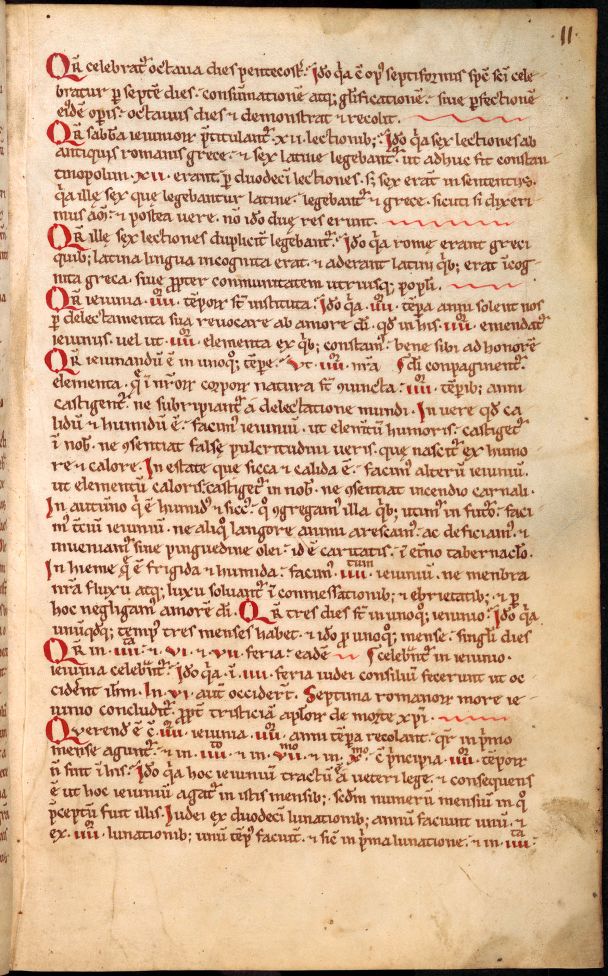 11
Qr̃ celebrat᷑ octava dies pentecost᷑. Ido q̃a ẽ op᷑ septiformis sp̃c sc̃i cele
bratur p̱ septẽ dies. consum̃ationẽ atq; gl̃ificationẽ. siue p̱fectionẽ
eiusdẽ op̱is. octauus dies & demonstrat & recolit.
Qr̃ sabb̃a ieiunior᷑ p̃titulant᷑ .xii. lectionib;. Ido q̃a sex lectiones ab
antiquis romanis grece. & sex latine legebant᷑. ut adhuc fit constan
tinopolim. xii. erant. p̱ duodecĩ lectiones. s; sex erant in sententiis.
q̃a ille sex que legebantur latine. legebant᷑ & grece. sicuti si dixeri
mus & postea uere. nõ ido duę res erunt.
Qr̃ illę sex lectiones duplicit̃ legebant᷑. Ido q̃a romę erant greci
quib; latina lingua incognita erat. & aderant latini q̃b; erat ĩcog
nita greca. siue p̱pter communitatem utriusq; pop̱li.
Qr̃ ieiunia .iiiior. tẽpor᷑ st̃ instituta. Ido q̃a .iiiior. tẽp̱a anni solent nos
p̱ delectamenta sua reuocare ab amore dĩ. qđ in his .iiiior. emendat᷑
ieiuniis. uel ut .iiiior. elementa ex q̃b; constam᷑. bene sibi ad honorẽ
Qr̃ ieiunandũ ẽ in unoq; tẽpe. Vt .iiiior. nr̃a dĩ conpaginent᷑.
elementa. q̃ ĩ nr̃or᷑ corpor᷑ natura st̃ ꝯiuncta .iiiior. tẽp̱ib; anni
castigent᷑. ne subripiant᷑ a delectatione mundi. In uere qđ ca
lidũ & humidũ ẽ. facim᷑ ieiuniũ. ut elemtũ humoris. castiget᷑
ĩ nob̃. ne ꝯsentiat falsę pulcritudini ueris. que nascit᷑ ex humo
re & calore. In estate que sicca & calida ẽ. facim᷑ alterũ ieiuniũ.
ut elementũ caloris. castiget᷑ in nob̃. ne ꝯsentiat incendio carnali.
In autũno q̃ ẽ humid᷑ & sicc᷑. q᷑ ꝯgregam᷑ illa q̃b; utim᷑ in fut̃o. faci
m᷑ t̃ciũ ieiuniũ. ne aliq᷑ langore animi arescam᷑. ac deficiam᷑. &
inueniam᷑ sine pinguedine olei. id ẽ caritatis. ĩ et̃no tabernac̃lo.
In hieme q̃ ẽ frigida & humida. facim᷑ .iiiitum. ieiuniũ. ne menbra
nr̃a fluxu atq; luxu soluant᷑ ĩ comessationib; & ebrietatib;. & p̱
hoc negligam᷑ amorẽ dĩ. Qr̃ tres dies st̃ in unoq; ieiunio. Ido q̃a
unũqđq; temp᷑ tres menses habet. & ido p̱ unoq; mense. singl̃i dies
Qr̃ in .iiiita. & .vi. & .vii. feria. eadẽ celebrñt᷑ in ieiunio.
ieiunia celebrñt᷑. Ido q̃a .ĩ .iiii. feria iudei consiliũ fecerunt ut oc
cident̃ ih̃m. In .vi. aut̃ occidert̃. Septima romanor᷑ more ie
iunio concludit᷑. p̱pt̃ tristiciã apl̃or᷑ de morte xp̃i.
Querend᷑ ẽ .iiiior. ieiunia .iiiior. anni tẽp̱a recolant. qr̃ in p̃mo
mense agunt᷑. & in .iiiito. & in .viimo. & in .xmo. p̃ncipia .iiiior. tẽpor᷑
ñ sint ĩ his. Ido q̃a hoc ieiuniũ tractũ ẽ a ueteri lege. & consequens
ẽ ut hoc ieiuniũ agat᷑ in istis mensib;. sc̃dm numerũ mensiũ in q̃
p̃ceptũ fuit illis. Iudei ex duodecĩ lunationib; annũ faciunt unũ. &
ex .iiiior. lunationib; unũ tẽp᷑ faciũt. & sic̃ in p̃ma lunatione. & in .iiiita.